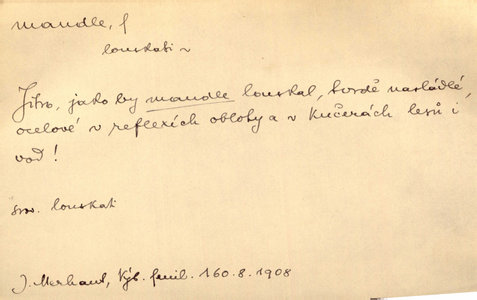 mandle, f
louskati ~
Jitro, jako by mandle louskal, tvrdě nasládlé,
ocelové v reflexích oblohy a v kučerách lesů i
vod!
srov. louskati
J. Merhaut, Výb. famil. 160.8.1908